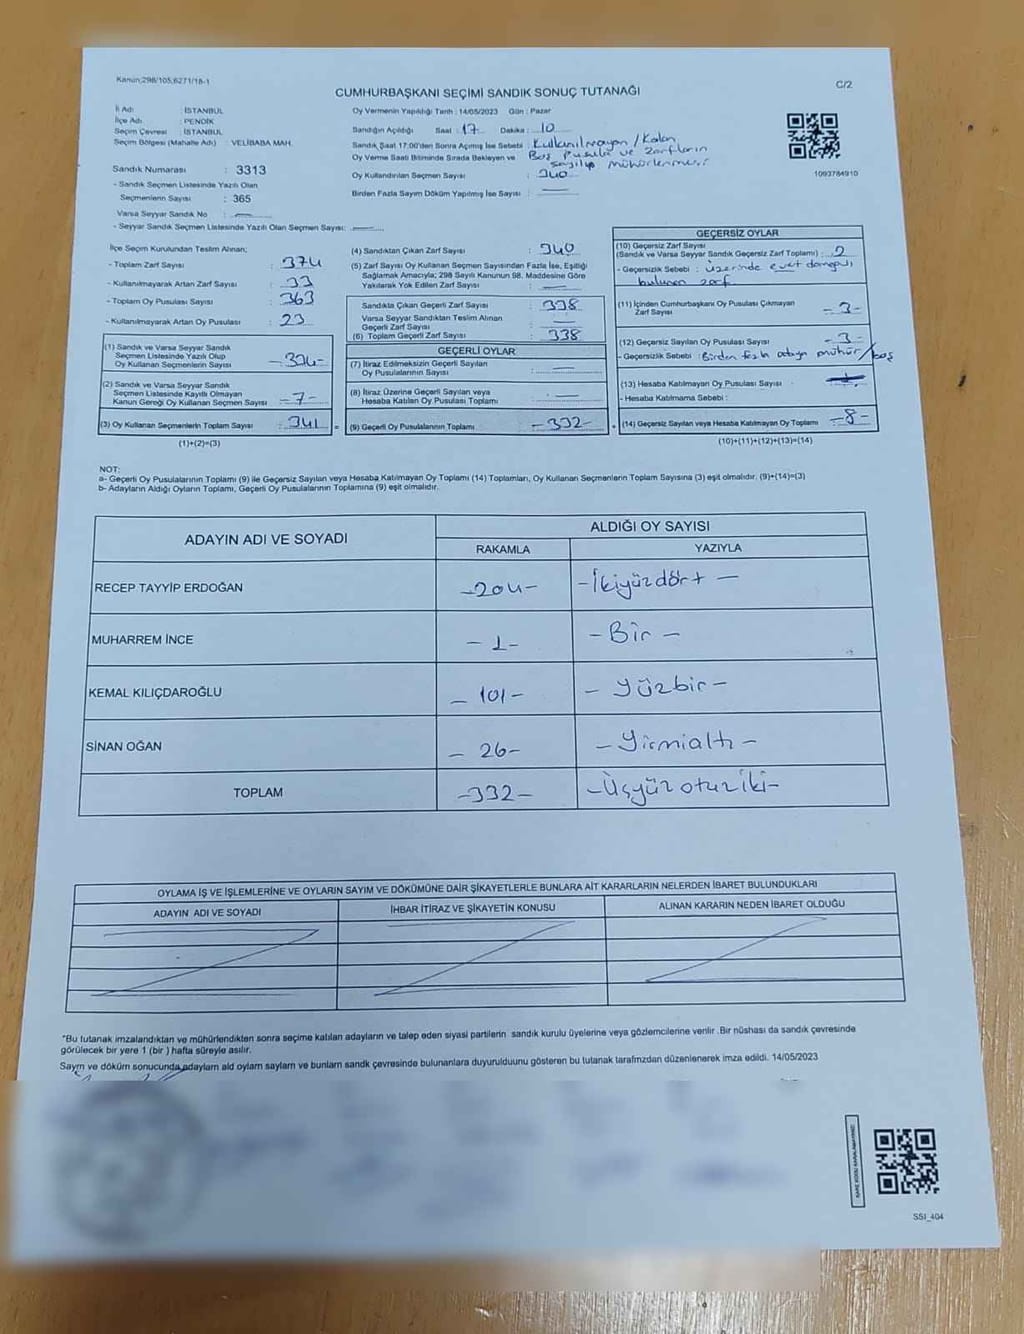 Kanun;298/105,6271/18-1
C/2
CUMHURBAŞKANI SEÇİMİ SANDIK SONUÇ TUTANAĞI
İl Adı : İSTANBUL
İlçe Adı : PENDİK
Seçim Çevresi : İSTANBUL
Seçim Bölgesi (Mahalle Adı) : VELİBABA MAH.
Sandık Numarası : 3313
- Sandık Seçmen Listesinde Yazılı Olan
Seçmenlerin Sayısı : 365
Varsa Seyyar Sandık No : —
- Seyyar Sandık Seçmen Listesinde Yazılı Olan Seçmen Sayısı: —
Oy Vermenin Yapıldığı Tarih : 14/05/2023 Gün : Pazar
Sandığın Açıldığı Saat : 17 Dakika : 10
Sandık Saat 17:00'den Sonra Açılmış İse Sebebi : Kullanılmayan / Kalan
Oy Verme Saati Bitiminde Sırada Bekleyen ve Boş Pusula ve zarfların
sayılıp mühürlenmesi
Oy Kullandırılan Seçmen Sayısı : 340
Birden Fazla Sayım Döküm Yapılmış İse Sayısı : —
1093784910
İlçe Seçim Kurulundan Teslim Alınan;
- Toplam Zarf Sayısı : 374
- Kullanılmayarak Artan Zarf Sayısı : 33
- Toplam Oy Pusulası Sayısı : 363
- Kullanılmayarak Artan Oy Pusulası : 23
(1) Sandık ve Varsa Seyyar Sandık
Seçmen Listesinde Yazılı Olup
Oy Kullanan Seçmenlerin Sayısı
(2) Sandık ve Varsa Seyyar Sandık
Seçmen Listesinde Kayıtlı Olmayan
Kanun Gereği Oy Kullanan Seçmen Sayısı -7-
(3) Oy Kullanan Seçmenlerin Toplam Sayısı : 341 =
(1)+(2)=(3)
(4) Sandıktan Çıkan Zarf Sayısı : 340
(5) Zarf Sayısı Oy Kullanan Seçmen Sayısından Fazla İse, Eşitliği
Sağlamak Amacıyla; 298 Sayılı Kanunun 98. Maddesine Göre
Yakılarak Yok Edilen Zarf Sayısı : —
Sandıkta Çıkan Geçerli Zarf Sayısı : 338
Varsa Seyyar Sandıktan Teslim Alınan
Geçerli Zarf Sayısı : —
(6) Toplam Geçerli Zarf Sayısı : 338
GEÇERLİ OYLAR
(7) İtiraz Edilmeksizin Geçerli Sayılan
Oy Pusulalarının Sayısı : —
(8) İtiraz Üzerine Geçerli Sayılan veya
Hesaba Katılan Oy Pusulası Toplamı : —
(9) Geçerli Oy Pusulalarının Toplamı -332- +
GEÇERSİZ OYLAR
(10) Geçersiz Zarf Sayısı
(Sandık ve Varsa Seyyar Sandık Geçersiz Zarf Toplamı) : 2
- Geçersizlik Sebebi : üzerinde evet damgası
bulunan zarf
(11) İçinden Cumhurbaşkanı Oy Pusulası Çıkmayan
Zarf Sayısı : -3-
(12) Geçersiz Sayılan Oy Pusulası Sayısı : -3-
- Geçersizlik Sebebi : Birden fazla adaya mühür/boş
(13) Hesaba Katılmayan Oy Pusulası Sayısı :
- Hesaba Katılmama Sebebi :
(14) Geçersiz Sayılan veya Hesaba Katılmayan Oy Toplamı -8-
(10)+(11)+(12)+(13)=(14)
NOT:
a- Geçerli Oy Pusulalarının Toplamı (9) ile Geçersiz Sayılan veya Hesaba Katılmayan Oy Toplamı (14) Toplamları, Oy Kullanan Seçmenlerin Toplam Sayısına (3) eşit olmalıdır. (9)+(14)=(3)
b- Adayların Aldığı Oyların Toplamı, Geçerli Oy Pusulalarının Toplamına (9) eşit olmalıdır.
ADAYIN ADI VE SOYADI ALDIĞI OY SAYISI
RAKAMLA YAZIYLA
RECEP TAYYİP ERDOĞAN -204- -İkiyüzdört-
MUHARREM İNCE -1- -Bir-
KEMAL KILIÇDAROĞLU -101- -Yüzbir-
SİNAN OĞAN -26- -Yirmialtı-
TOPLAM -332- -Üçyüzotuziki-
OYLAMA İŞ VE İŞLEMLERİNE VE OYLARIN SAYIM VE DÖKÜMÜNE DAİR ŞİKAYETLERLE BUNLARA AİT KARARLARIN NELERDEN İBARET BULUNDUKLARI
ADAYIN ADI VE SOYADI İHBAR İTİRAZ VE ŞİKAYETİN KONUSU ALINAN KARARIN NEDEN İBARET OLDUĞU
*Bu tutanak imzalandıktan ve mühürlendikten sonra seçime katılan adayların ve talep eden siyasi partilerin sandık kurulu üyelerine veya gözlemcilerine verilir .Bir nüshası da sandık çevresinde
görülecek bir yere 1 (bir ) hafta süreyle asılır.
Sayım ve döküm sonucunda,adayların ald oyların sayların ve bunların sandk çevresinde bulunanlara duyurulduunu gösteren bu tutanak tarafmzdan düzenlenerek imza edildi. 14/05/2023
SSI_404